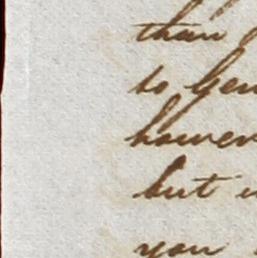 than
to Gen
however
but
you